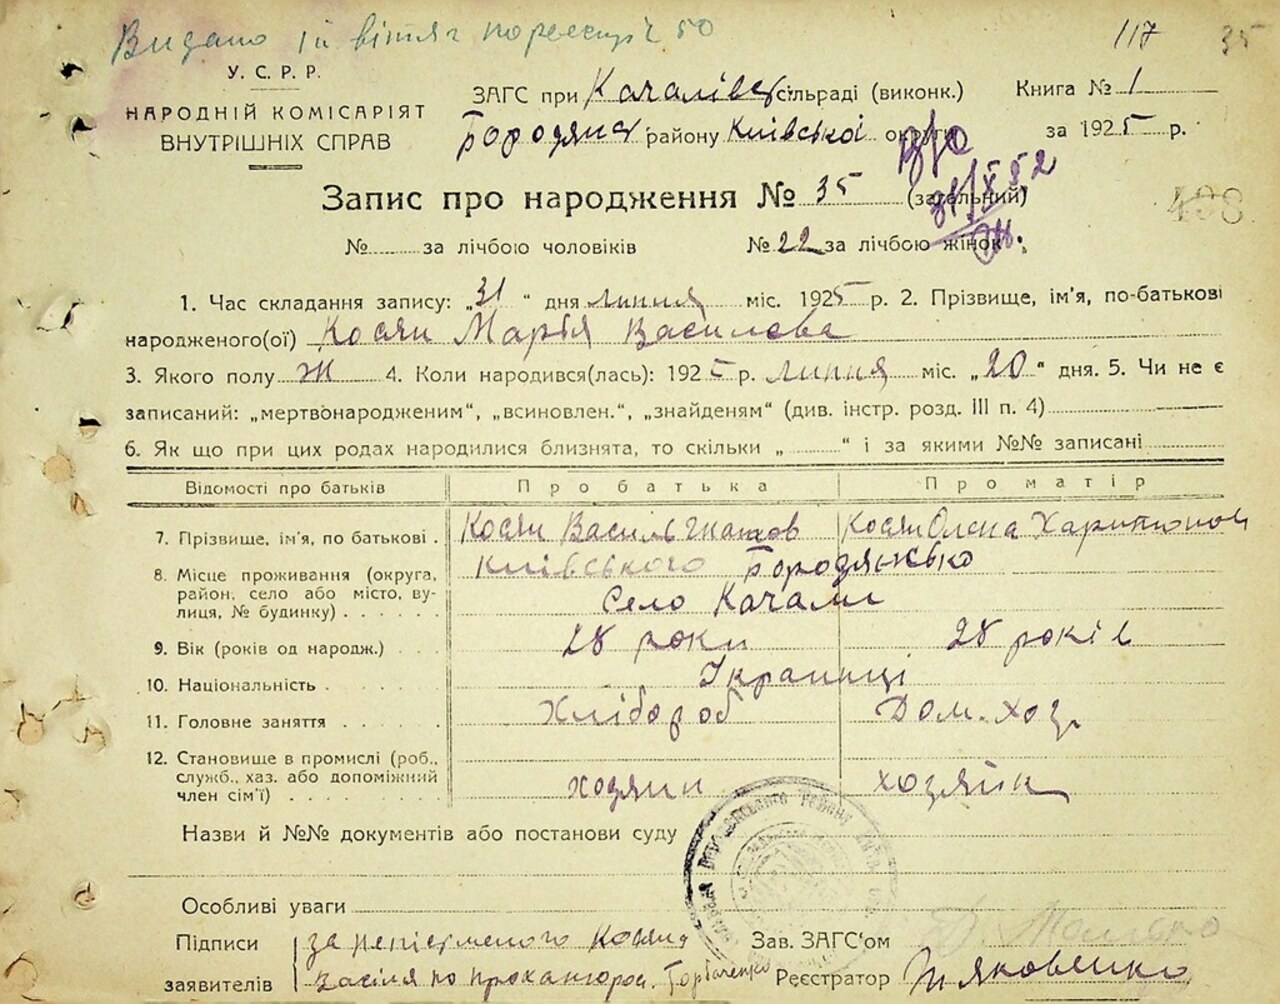 Видано 1й витяг 50
117 35
У. С. Р. Р.
НАРОДНІЙ КОМІСАРІЯТ
ВНУТРІШНІХ СПРАВ
ЗАГС при Качалівс сільраді (виконк.) Книга № 1
Бородянс району Київської округи за 1925 р.
Запис про народження № 35 (загельний)
31/X 52
498
№ за лічбою чоловіків № 22 за лічбою жінок
1. Час складання запису: „31“ дня липня міс. 1925 р. 2. Прізвище, ім'я, по-батькові
народженого(ої) Косян Марія Василєва
3. Якого полу Ж 4. Коли народився(лась): 1925 р. липня міс. „20“ дня. 5. Чи не є
записаний: „мертвонародженим“, „всиновлен.“, „знайденям“ (див. інстр. розд. III п. 4)
6. Як що при цих родах народилися близнята, то скільки „ “ і за якими №№ записані
Відомості про батьків Про батька Про матір
7. Прізвище, ім'я, по батькові . Косян Василь Гнатов Косян Олена Харитонов
8. Місце проживання (округа, Київського Бородянсько
район, село або місто, ву-
лиця, № будинку) . . . . . Село Качали
9. Вік (років од народж.) . . . 28 роки 28 років
10. Національність . . . . . . Українці
11. Головне заняття . . . . . Хлібороб Дом. хоз.
12. Становище в промислі (роб.,
служб., хаз. або допоміжний
член сім'ї) . . . . . . . . хозяин хозяйк
Назви й №№ документів або постанови суду
Особливі уваги
Підписи за неписьменого Косяна Зав. ЗАГС'ом
заявителів Василя по Горбаченко Реєстратор Яковенко